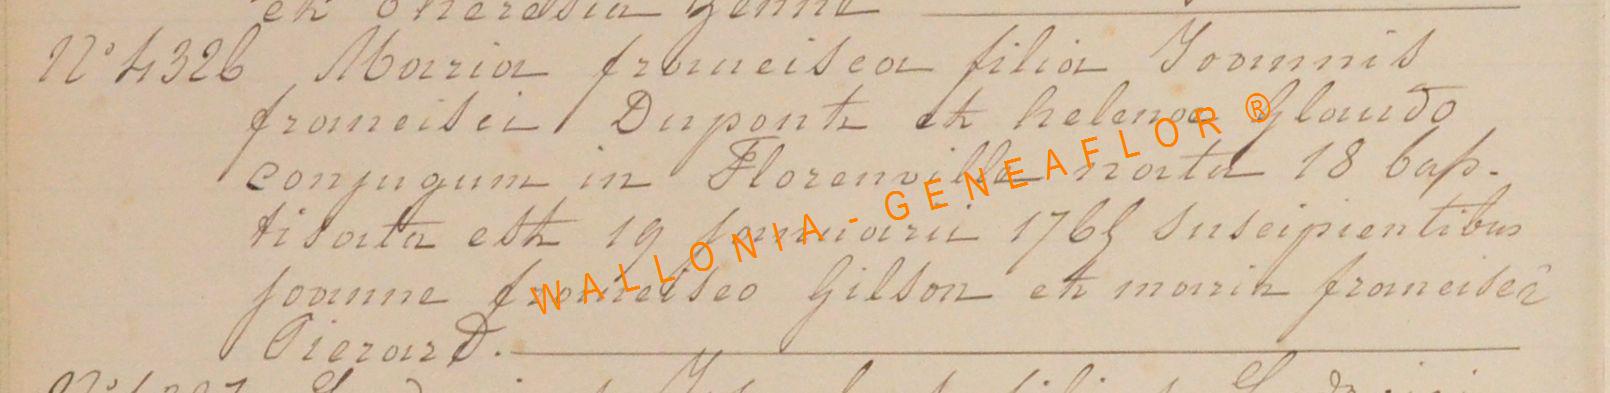 et Theresia
N° 4326 Maria francisca filia Joannis
francisci Dupont et helenæ Glaudo
conjugum in Florenville nata 18 bap-
tisata est 19 januarii 1765 suscipientibus
joanne francisco Gilson et maria franciscâ
Pierard.
WALLONIA - GENEAFLOR ®